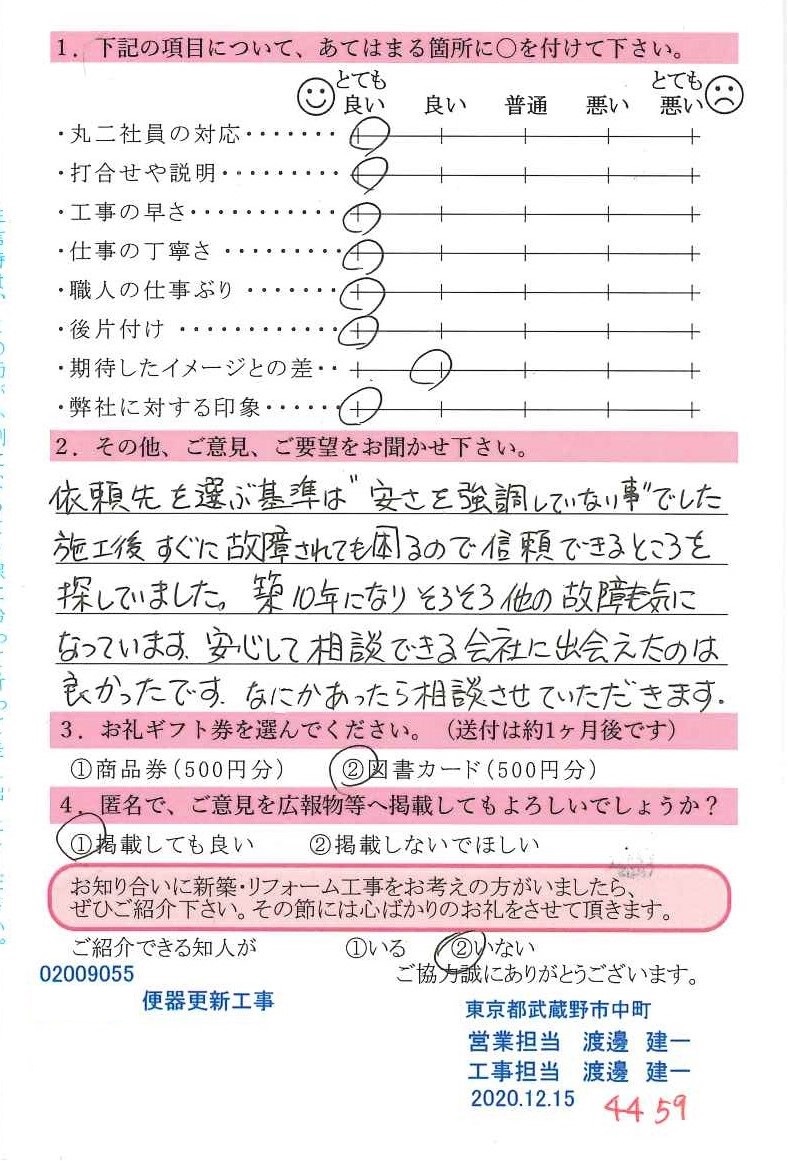 1．下記の項目について、あてはまる箇所に○を付けて下さい。
とても良い 良い 普通 悪い とても悪い
・丸二社員の対応・・・・・・・
・打合せや説明・・・・・・・・・
・工事の早さ・・・・・・・・・・・
・仕事の丁寧さ・・・・・・・・・
・職人の仕事ぶり・・・・・・・
・後片付け・・・・・・・・・・・・
・期待したイメージとの差・・
・弊社に対する印象・・・・・・
2．その他、ご意見、ご要望をお聞かせ下さい。
依頼先を選ぶ基準は"安さを強調していない事"でした
施工後すぐに故障されても困るので信頼できるところを
探していました。築10年になりそろそろ他の故障も気に
なっています。安心して相談できる会社に出会えたのは
良かったです。なにかあったら相談させていただきます。
3．お礼ギフト券を選んでください。（送付は約1ヶ月後です）
①商品券（500円分） ②図書カード（500円分）
4．匿名で、ご意見を広報物等へ掲載してもよろしいでしょうか？
①掲載しても良い ②掲載しないでほしい
お知り合いに新築・リフォーム工事をお考えの方がいましたら、
ぜひご紹介下さい。その節には心ばかりのお礼をさせて頂きます。
ご紹介できる知人が ①いる ②いない
ご協力誠にありがとうございます。
02009055
便器更新工事
東京都武蔵野市中町
営業担当 渡邊 建一
工事担当 渡邊 建一
2020.12.15
4459